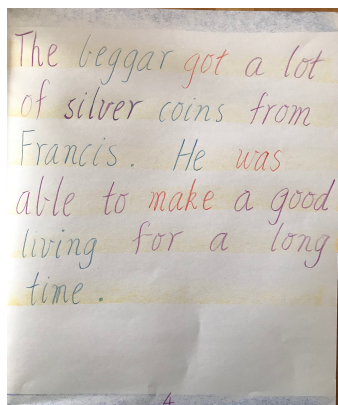 The beggar got a lot
of silver coins from
Francis. He was
able to make a good
living for a long
time.
4